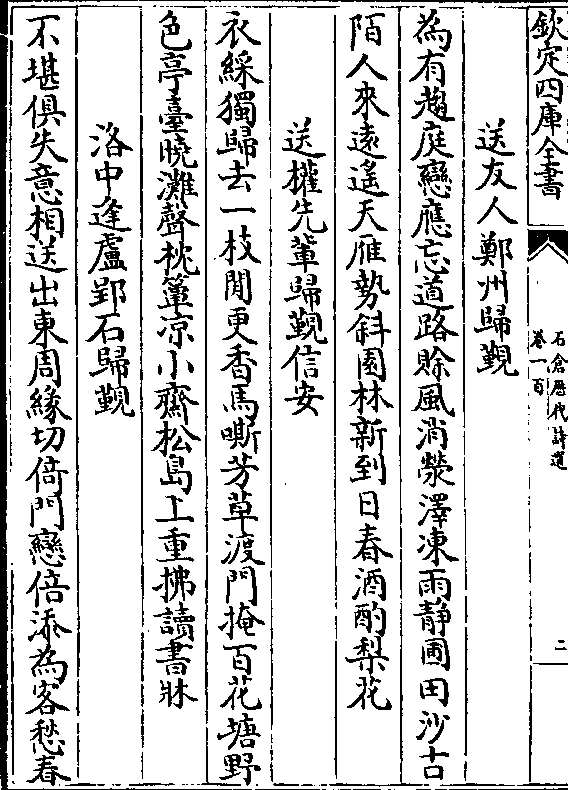 欽定四庫全書
石倉歷代詩選
卷一百
二
送友人鄭州歸覲
為有趨庭戀應忘道路賖風消滎澤凍雨靜圃田沙古
陌人來遠遙天雁勢斜園林新到日春酒酌梨花
送權先軰歸覲信安
衣綵獨歸去一枝閒更香馬嘶芳草渡門掩百花塘野
色亭臺曉灘聲枕簟凉小齋松島上重拂讀書牀
洛中逢盧郢石歸覲
不堪俱失意相送出東周緣切倚門戀倍添為客愁春